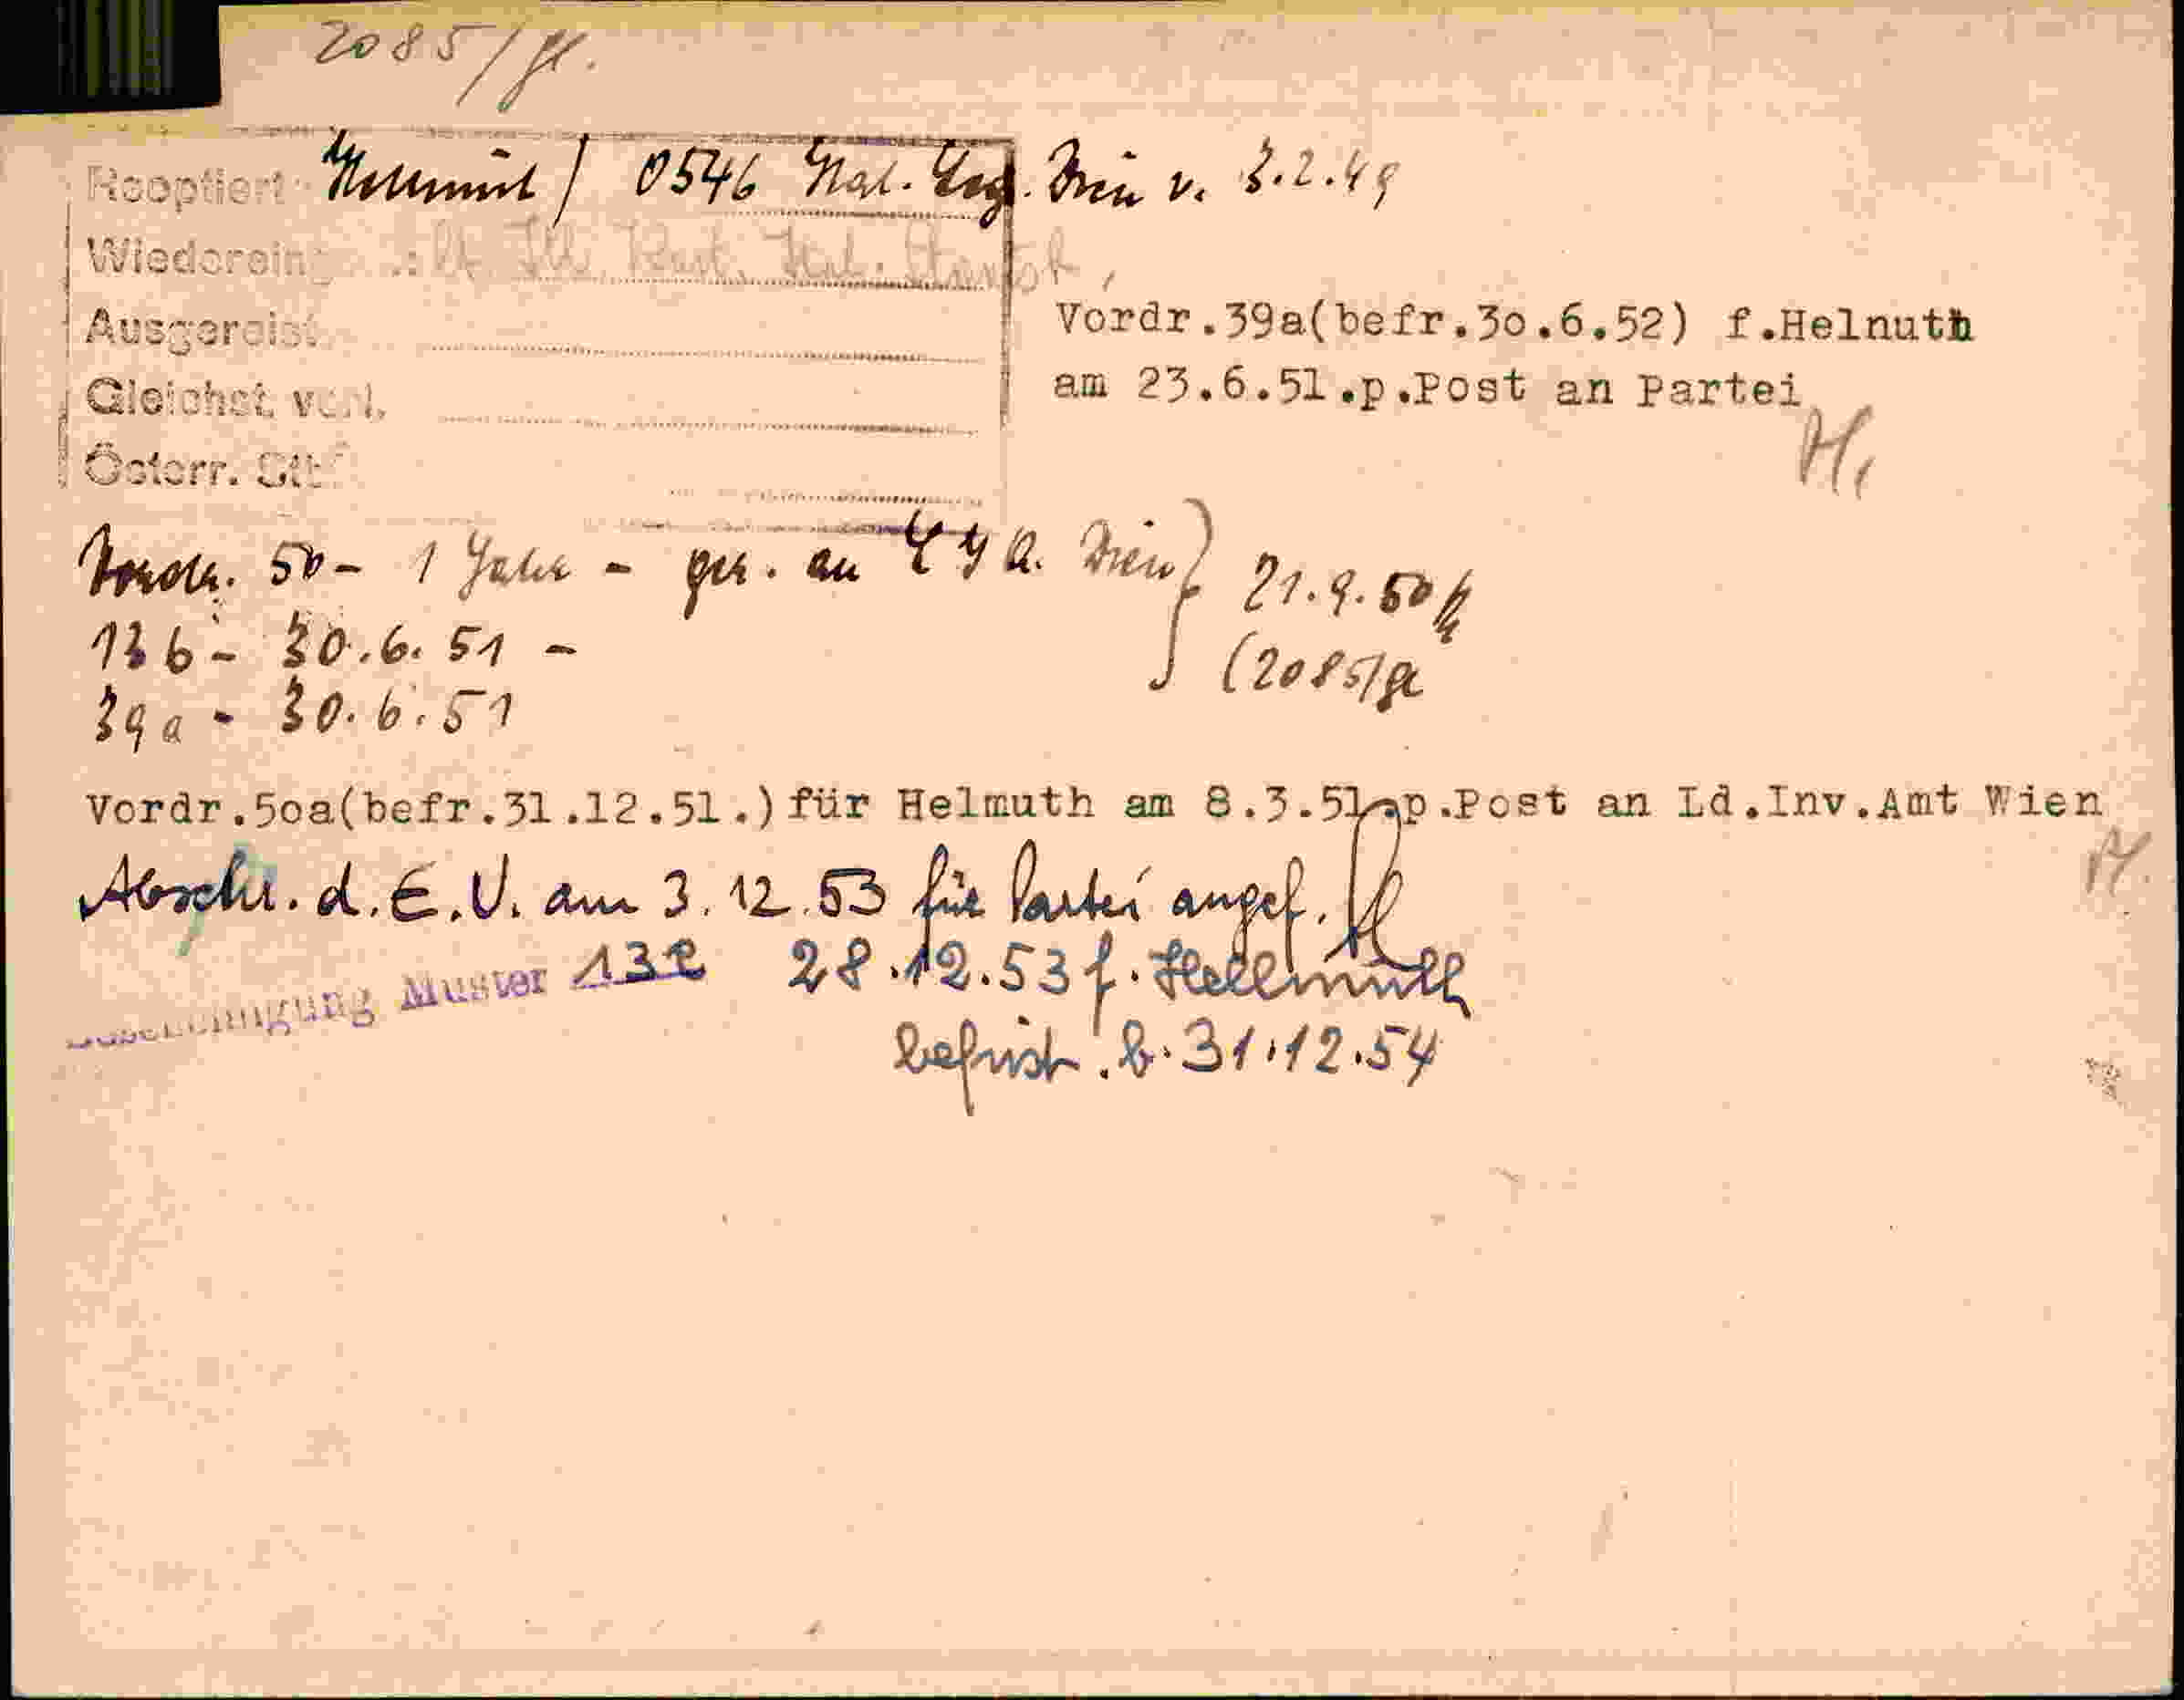 2085/gl.
Reoptiert: Hellmut / 0546 Ital. Leg. Wien v. 3.2.49
Wiedereing.: Ital.
Ausgereist
Gleichst. verl.
Österr. Stb
Vordr.39a(befr.3o.6.52) f.Helnuth
am 23.6.51.p.Post an Partei
H.
Vordr. 50 - 1 Jahr - ges. an L I A. Wien } 21.9.50
13 b - 30.6.51 - (2085/gl
39a - 30.6.51
Vordr.5oa(befr.31.12.51.)für Helmuth am 8.3.51.p.Post an Ld.Inv.Amt Wien
H.
Abschr. d. E.V. am 3.12.53 für Partei angef.
Bescheinigung Muster 13e 28.12.53 f. Hellmuth
befrist. b. 31.12.54